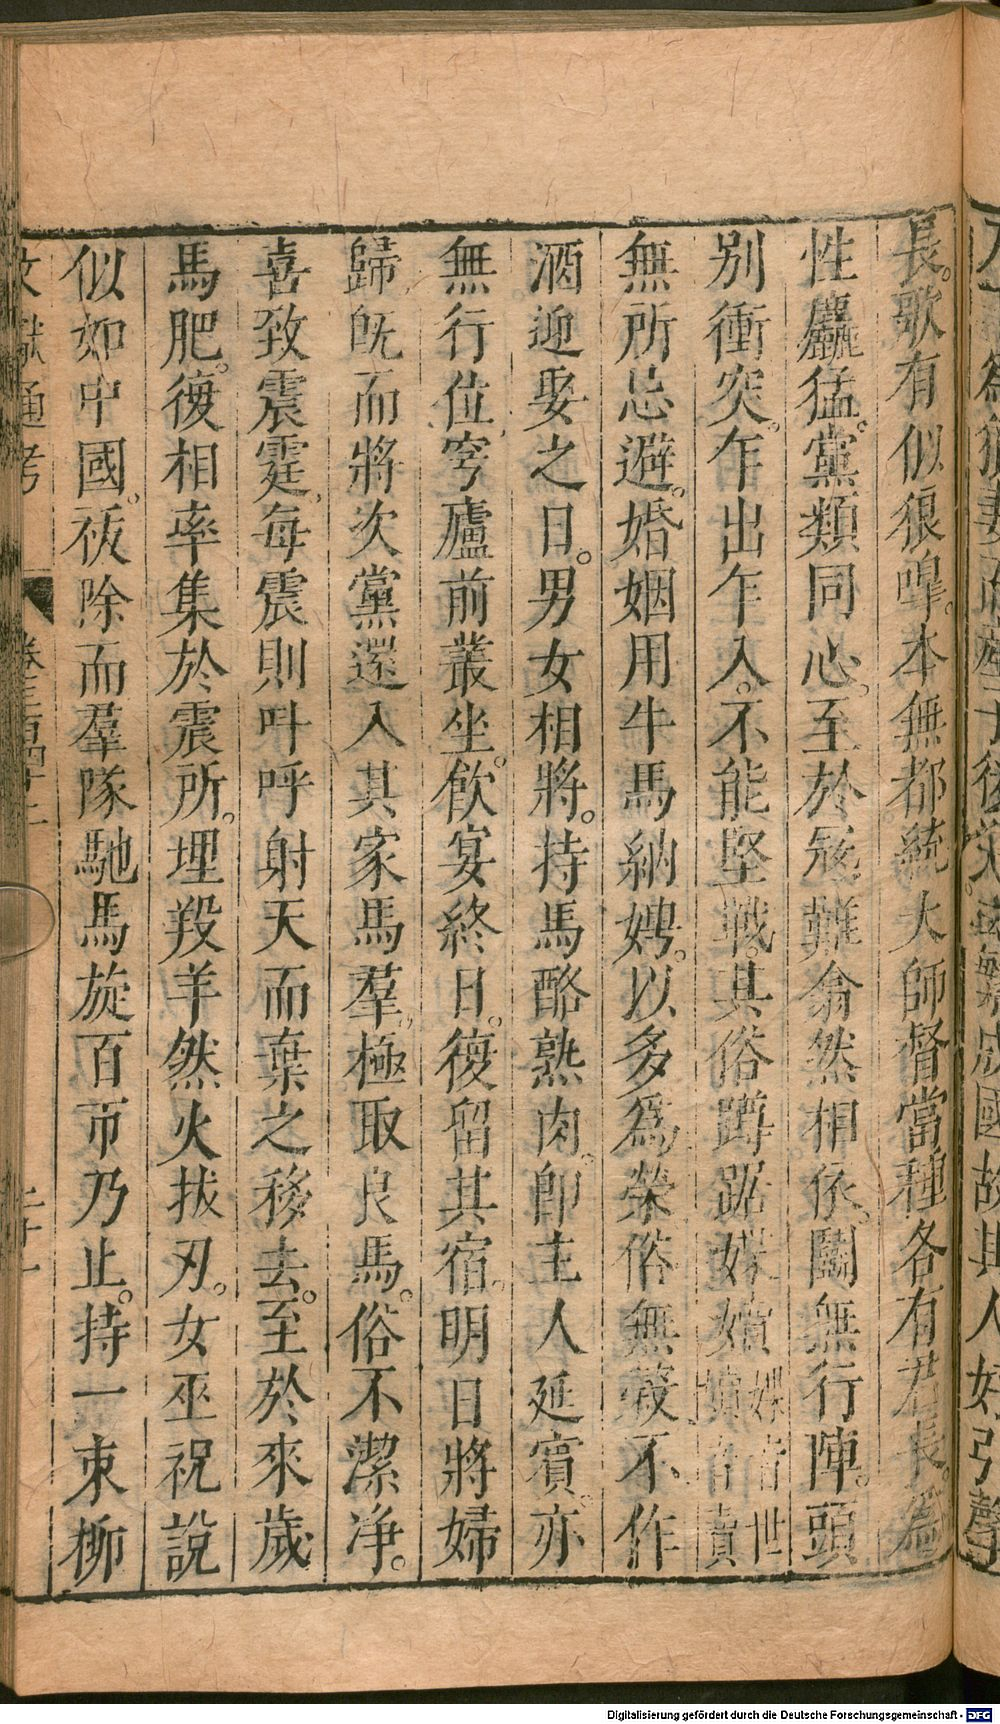 長歌有似狼嘷本無都統大師督當種各有君長爲
性麤猛黨類同心至於寇難翕然相依鬭無行陣頭
別衝突乍出乍入不能堅戰其俗蹲踞媟嬻媟音世嬻音賣
無所忌避婚姻用牛馬納娉以多爲榮俗無榖不作
酒迎娶之日男女相將持馬酪熟肉卽主人延賓亦
無行位穹廬前叢坐飮宴終日復留其宿明日將婦
歸旣而將次黨還入其家馬羣極取良馬俗不潔净
喜致震霆每震則呌呼射天而棄之移去至於來歲
馬肥復相率集於震所埋羖羊然火拔刃女巫祝說
似如中國祓除而羣隊馳馬旋百帀乃止持一束柳
文獻通考 卷三百四十
Digitalisierung gefördert durch die Deutsche Forschungsgemeinschaft - DFG